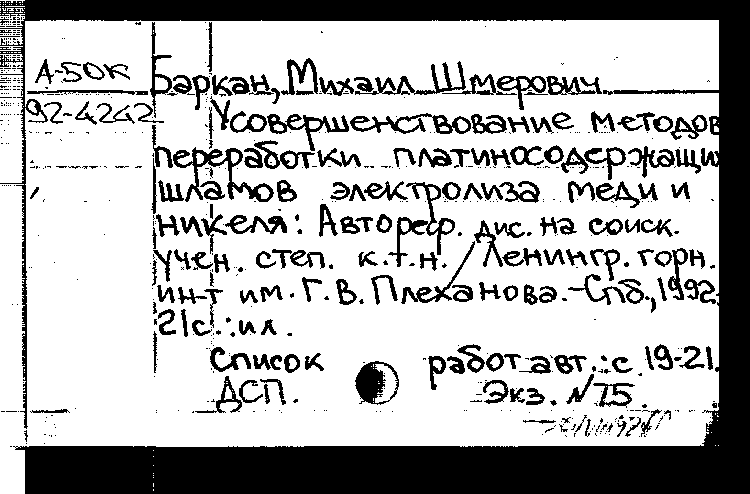 А-50К Баркан, Михаил Шмерович
92-4242 Усовершенствование методов
переработки платиносодержащих
шламов электролиза меди и
никеля: Автореф. дис. на соиск.
учен. степ. к.т.н. / Ленингр. горн.
ин-т им. Г. В. Плеханова. - Спб., 1992.
21с.: ил.
Список работ авт.: с. 19-21.
ДСП. Экз. N 75.